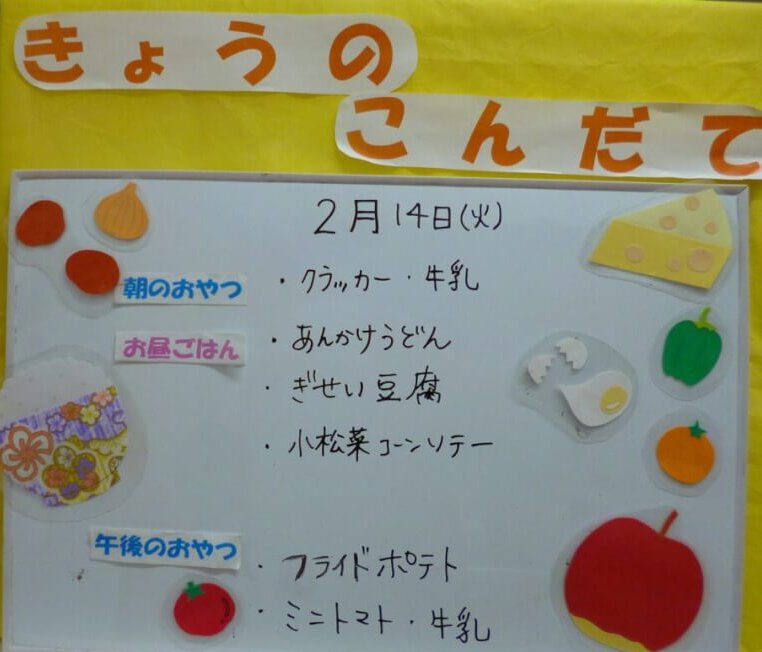 きょうの
こんだて
2月14日(火)
朝のおやつ ・クラッカー・牛乳
お昼ごはん ・あんかけうどん
・ぎせい豆腐
・小松菜コーンソテー
午後のおやつ ・フライドポテト
・ミニトマト・牛乳